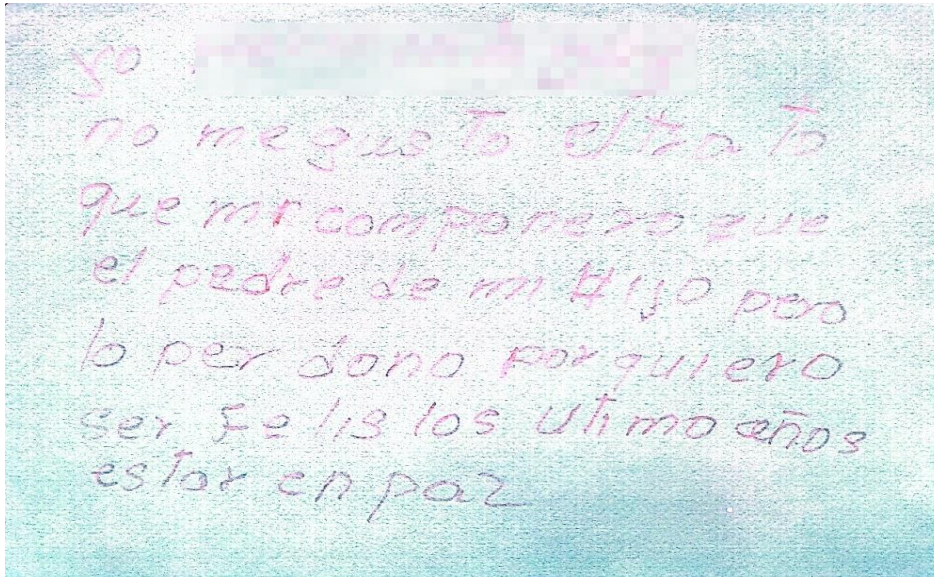 yo
no me gusto el trato
que mi componero que
el pedre de mi Hijo pero
lo per dono por quiero
ser Felis los utimo años
estar en paz